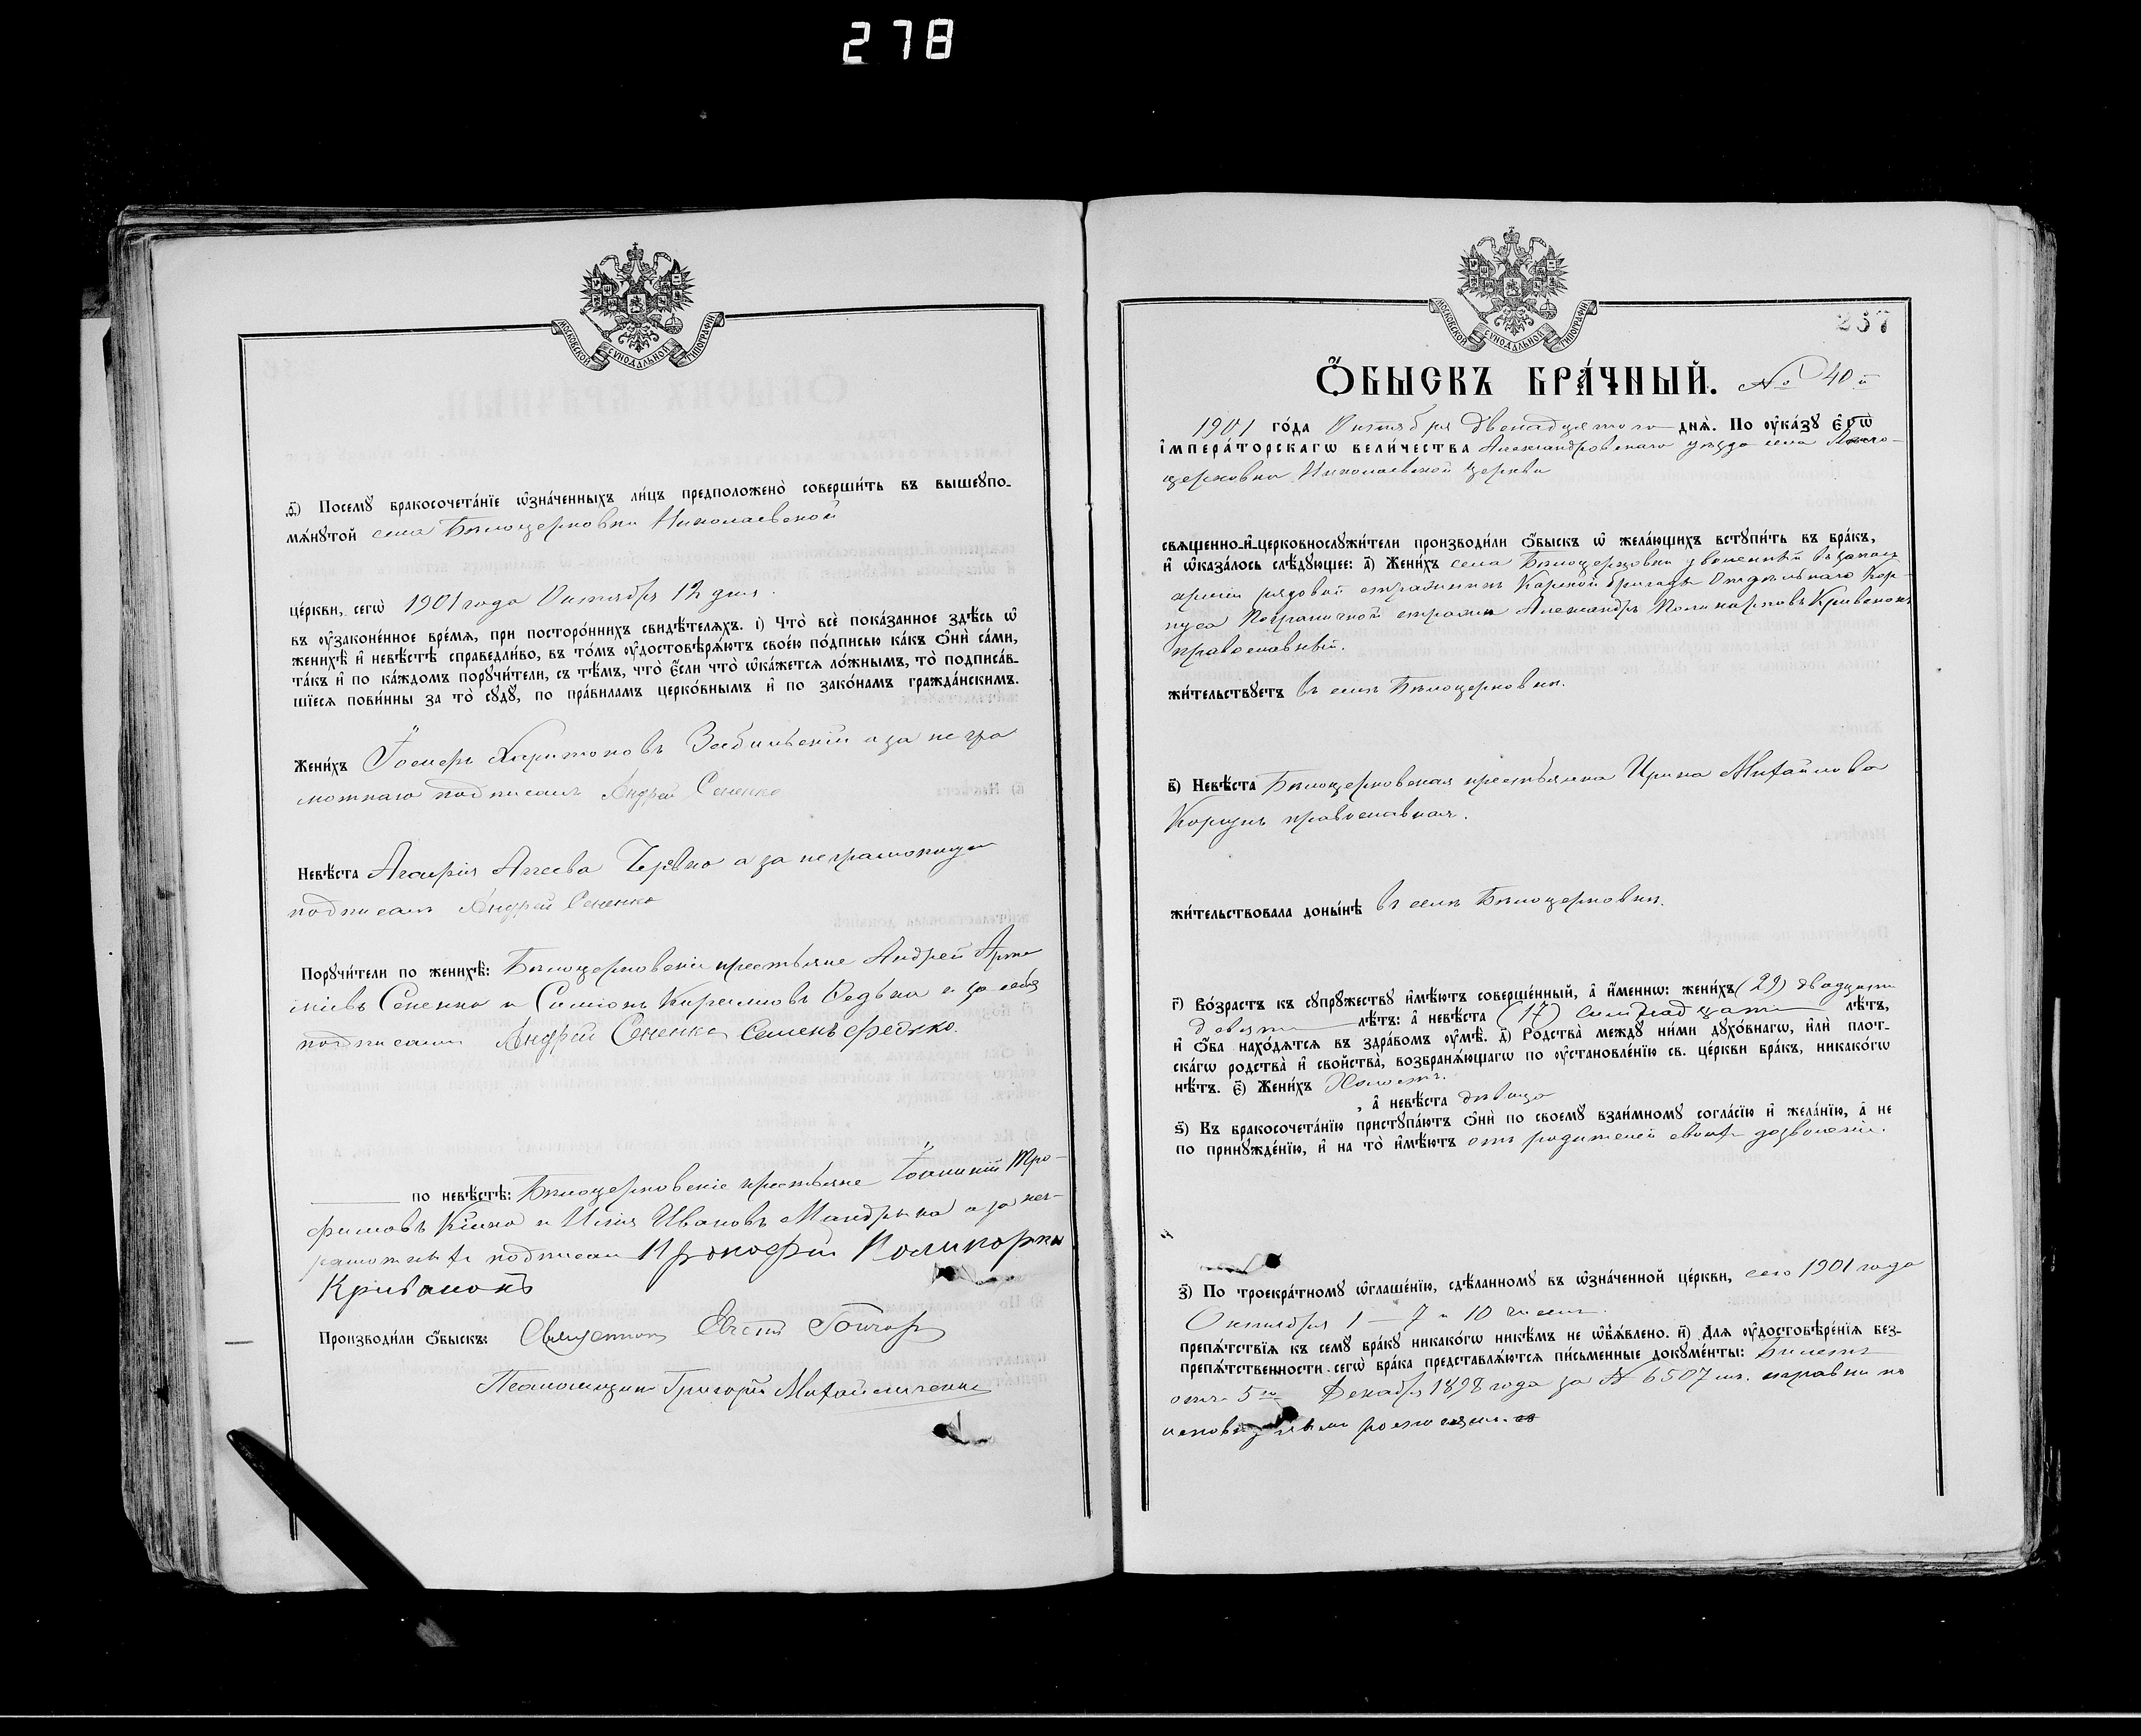 278
МОСКОВСКОЙ СѴНОДАЛЬНОЙ ТИПОГРАФІИ
ѳ҃) Посемꙋ бракосочета́нїе ѡ҆зна́ченныхъ ли́цъ предположено̀ соверши́ть въ вышеꙋпо-
мѧ́нꙋтой села Бѣлоцерковки Николаевской
це́ркви, сегѡ̀ 1901 года Октября 12 дня.
въ ᲂу҆зако́ненное вре́мѧ, при посторо́ннихъ свидѣ́телѧхъ. і҃) Что̀ всѐ пока́занное здѣ́сь ѡ҆
женихѣ̀ и҆ невѣ́стѣ справедли́во, въ то́мъ ᲂу҆достовѣрѧ́ютъ свое́ю по́дписью ка́къ ѻ҆нѝ са́ми,
та́къ и҆ по ка́ждомъ порꙋчи́тели, съ тѣ́мъ, что̀ є҆́сли что̀ ѡ҆ка́жетсѧ ло́жнымъ, то̀ подписа́в-
шїесѧ пови́нны за то̀ сꙋдꙋ̀, по пра́виламъ церко́внымъ и҆ по зако́намъ гражда́нскимъ.
Жени́хъ Харитоновъ а за негра
мотнаго подписалъ Андрей Сененко
Невѣ́ста а за неграмотную
подписалъ Андрей Сененко
Порꙋчи́тели по женихѣ̀: Бѣлоцерковскіе крестьяне Андрей Арте
міевъ Сененко и Симіонъ Кирилловъ Федько и за себя
подписали Андрей Сененко Семенъ Федько.
по невѣ́стѣ: Бѣлоцерковскіе крестьяне Іоанникій Тро-
фимовъ и Илія Ивановъ Мандрыка а за нег-
рамотныхъ подписал Прокофій Поликорпов
Кривонокъ
Производи́ли ѻ҆́быскъ: Священник Евсевій Гончар
Псаломщик Григорій Михайличенко
МОСКОВСКОЙ СѴНОДАЛЬНОЙ ТИПОГРАФІИ
237
Ѻ҆́БЫСКЪ БРА́ЧНЫЙ. № 40й
1901 го́да Октября двенадцатого днѧ̀. По ᲂу҆ка́зꙋ Є҆гѡ̀
І҆мпера́торскагѡ вели́чества Александровскаго уезда села Бѣло-
церковки Николаевской церкви
свѧщенно-и҆-церковнослꙋжи́тели производи́ли ѻ҆́быскъ ѡ҆ жела́ющихъ встꙋпи́ть въ бра́къ,
и҆ ѡ҆каза́лось слѣ́дꙋющее: а҃) Жени́хъ села Бѣлоцерковки уволенный въ запасъ
арміи рядовой стражникъ Карской бригады Отдѣльнаго Кор-
пуса Пограничной стражи Александръ Поликарповъ Кривонокъ
православный.
жи́тельствꙋетъ въ селѣ Бѣлоцерковкѣ.
в҃) Невѣ́ста Бѣлоцерковская крестьянка Ирина Михайлова
Коржъ православная.
жи́тельствовала доны́нѣ въ селѣ Бѣлоцерковкѣ.
г҃) Во́зрастъ къ сꙋпрꙋ́жествꙋ и҆мѣ́ютъ соверше́нный, а҆ и҆́менно: жени́хъ (29) двадцати
девяти лѣ́тъ: а҆ невѣ́ста (17) семнадцати лѣ́тъ,
и҆ ѻ҆́ба нахо́дѧтсѧ въ здра́вомъ ᲂу҆мѣ̀. д҃) Родства̀ междꙋ̀ ни́ми дꙋхо́внагѡ, и҆лѝ плот-
ска́гѡ родства̀ и҆ свойства̀, возбранѧ́ющагѡ по ᲂу҆становле́нїю св. це́ркви бра́къ, никако́гѡ
нѣ́тъ. є҃) Жени́хъ Холостъ.
, а҆ невѣ́ста дѣвица
ѕ҃) Къ бракосочета́нїю пристꙋпа́ютъ ѻ҆нѝ по своемꙋ̀ взаи́мномꙋ согла́сїю и҆ жела́нїю, а҆ не
по принꙋжде́нїю, и҆ на то̀ и҆мѣ́ютъ отъ родителей своихъ дозволеніе.
з҃) По троекра́тномꙋ ѡ҆глаше́нїю, сдѣ́ланномꙋ въ ѡ҆зна́ченной це́ркви, сего 1901 года
Октября 1 — 7 и 10 числа.
препѧ́тствїѧ къ семꙋ̀ бра́кꙋ никако́гѡ никѣ́мъ не ѡ҆б̾ѧ́влено. и҃) Длѧ ᲂу҆достовѣре́нїѧ без-
препѧ́тственности сегѡ̀ бра́ка представлѧ́ютсѧ пи́сьменные докꙋме́нты: Билетъ
отъ 5го Декабря 1898 года за № 6507 справки по
исповѣднымъ росписям